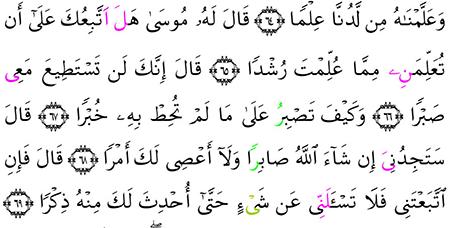 وَعَلَّمْنَٰهُ مِن لَّدُنَّا عِلْمًا ﴿٦٤﴾ قَالَ لَهُۥ مُوسَىٰ هَلَ اَتَّبِعُكَ عَلَىٰٓ أَن
تُعَلِّمَنِۦ مِمَّا عُلِّمْتَ رُشْدًا ﴿٦٥﴾ قَالَ إِنَّكَ لَن تَسْتَطِيعَ مَعِى
صَبْرًا ﴿٦٦﴾ وَكَيْفَ تَصْبِرُ عَلَىٰ مَا لَمْ تُحِطْ بِهِۦ خُبْرًا ﴿٦٧﴾ قَالَ
سَتَجِدُنِىَ إِن شَآءَ ٱللَّهُ صَابِرًا وَلَآ أَعْصِى لَكَ أَمْرًا ﴿٦٨﴾ قَالَ فَإِنِ
ٱتَّبَعْتَنِى فَلَا تَسْـَٔلَنِّى عَن شَىْءٍ حَتَّىٰٓ أُحْدِثَ لَكَ مِنْهُ ذِكْرًا ﴿٦٩﴾